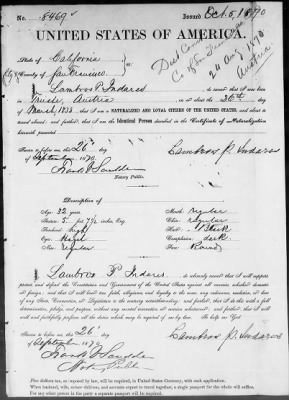 No. 8469 Issued Oct. 5, 1870
UNITED STATES OF AMERICA.
State of California
City & County of San Francisco
Dist Court
24 Aug 1870
I, Lambros P. Indares do swear that I was born in
Trieste, Austria on or about the day
of March, 1838 that I am a NATURALIZED AND LOYAL CITIZEN OF THE UNITED STATES, and about to
travel abroad; and further, that I am the Identical Person described in the Certificate of Naturalization
herewith presented.
Sworn to before me, this 26
of September 1870
Lambros P. Indares
Notary Public.
Description of
Age: 32 years
Stature: 5 feet 7 1/2 inches, Eng.
Forehead: high
Eyes: Hazel
Nose: regular
Mouth: regular
Chin: regular
Hair: Black
Complexion: dark
Face: Round
I, Lambros P. Indares do solemnly swear that I will support,
protect and defend the Constitution and Government of the United States against all enemies, whether domestic
or foreign; and that I will bear true faith, allegiance and loyalty to the same, any ordinance, resolution or law
of any State, Convention or Legislature to the contrary notwithstanding; and further, that I do this with a full
determination, pledge, and purpose, without any mental reservation or evasion whatsoever; and further, that I will
well and faithfully perform all the duties which may be required of me by law. So help me God.
Sworn to before me, this 26
of September 1870
Lambros P. Indares
Notary Public
Five dollars tax, as imposed by law, will be required, in United States Currency, with each application.
When husband, wife, minor children, and servants expect to travel together, a single passport for the whole will suffice.
For any other person in the party a separate passport will be required.